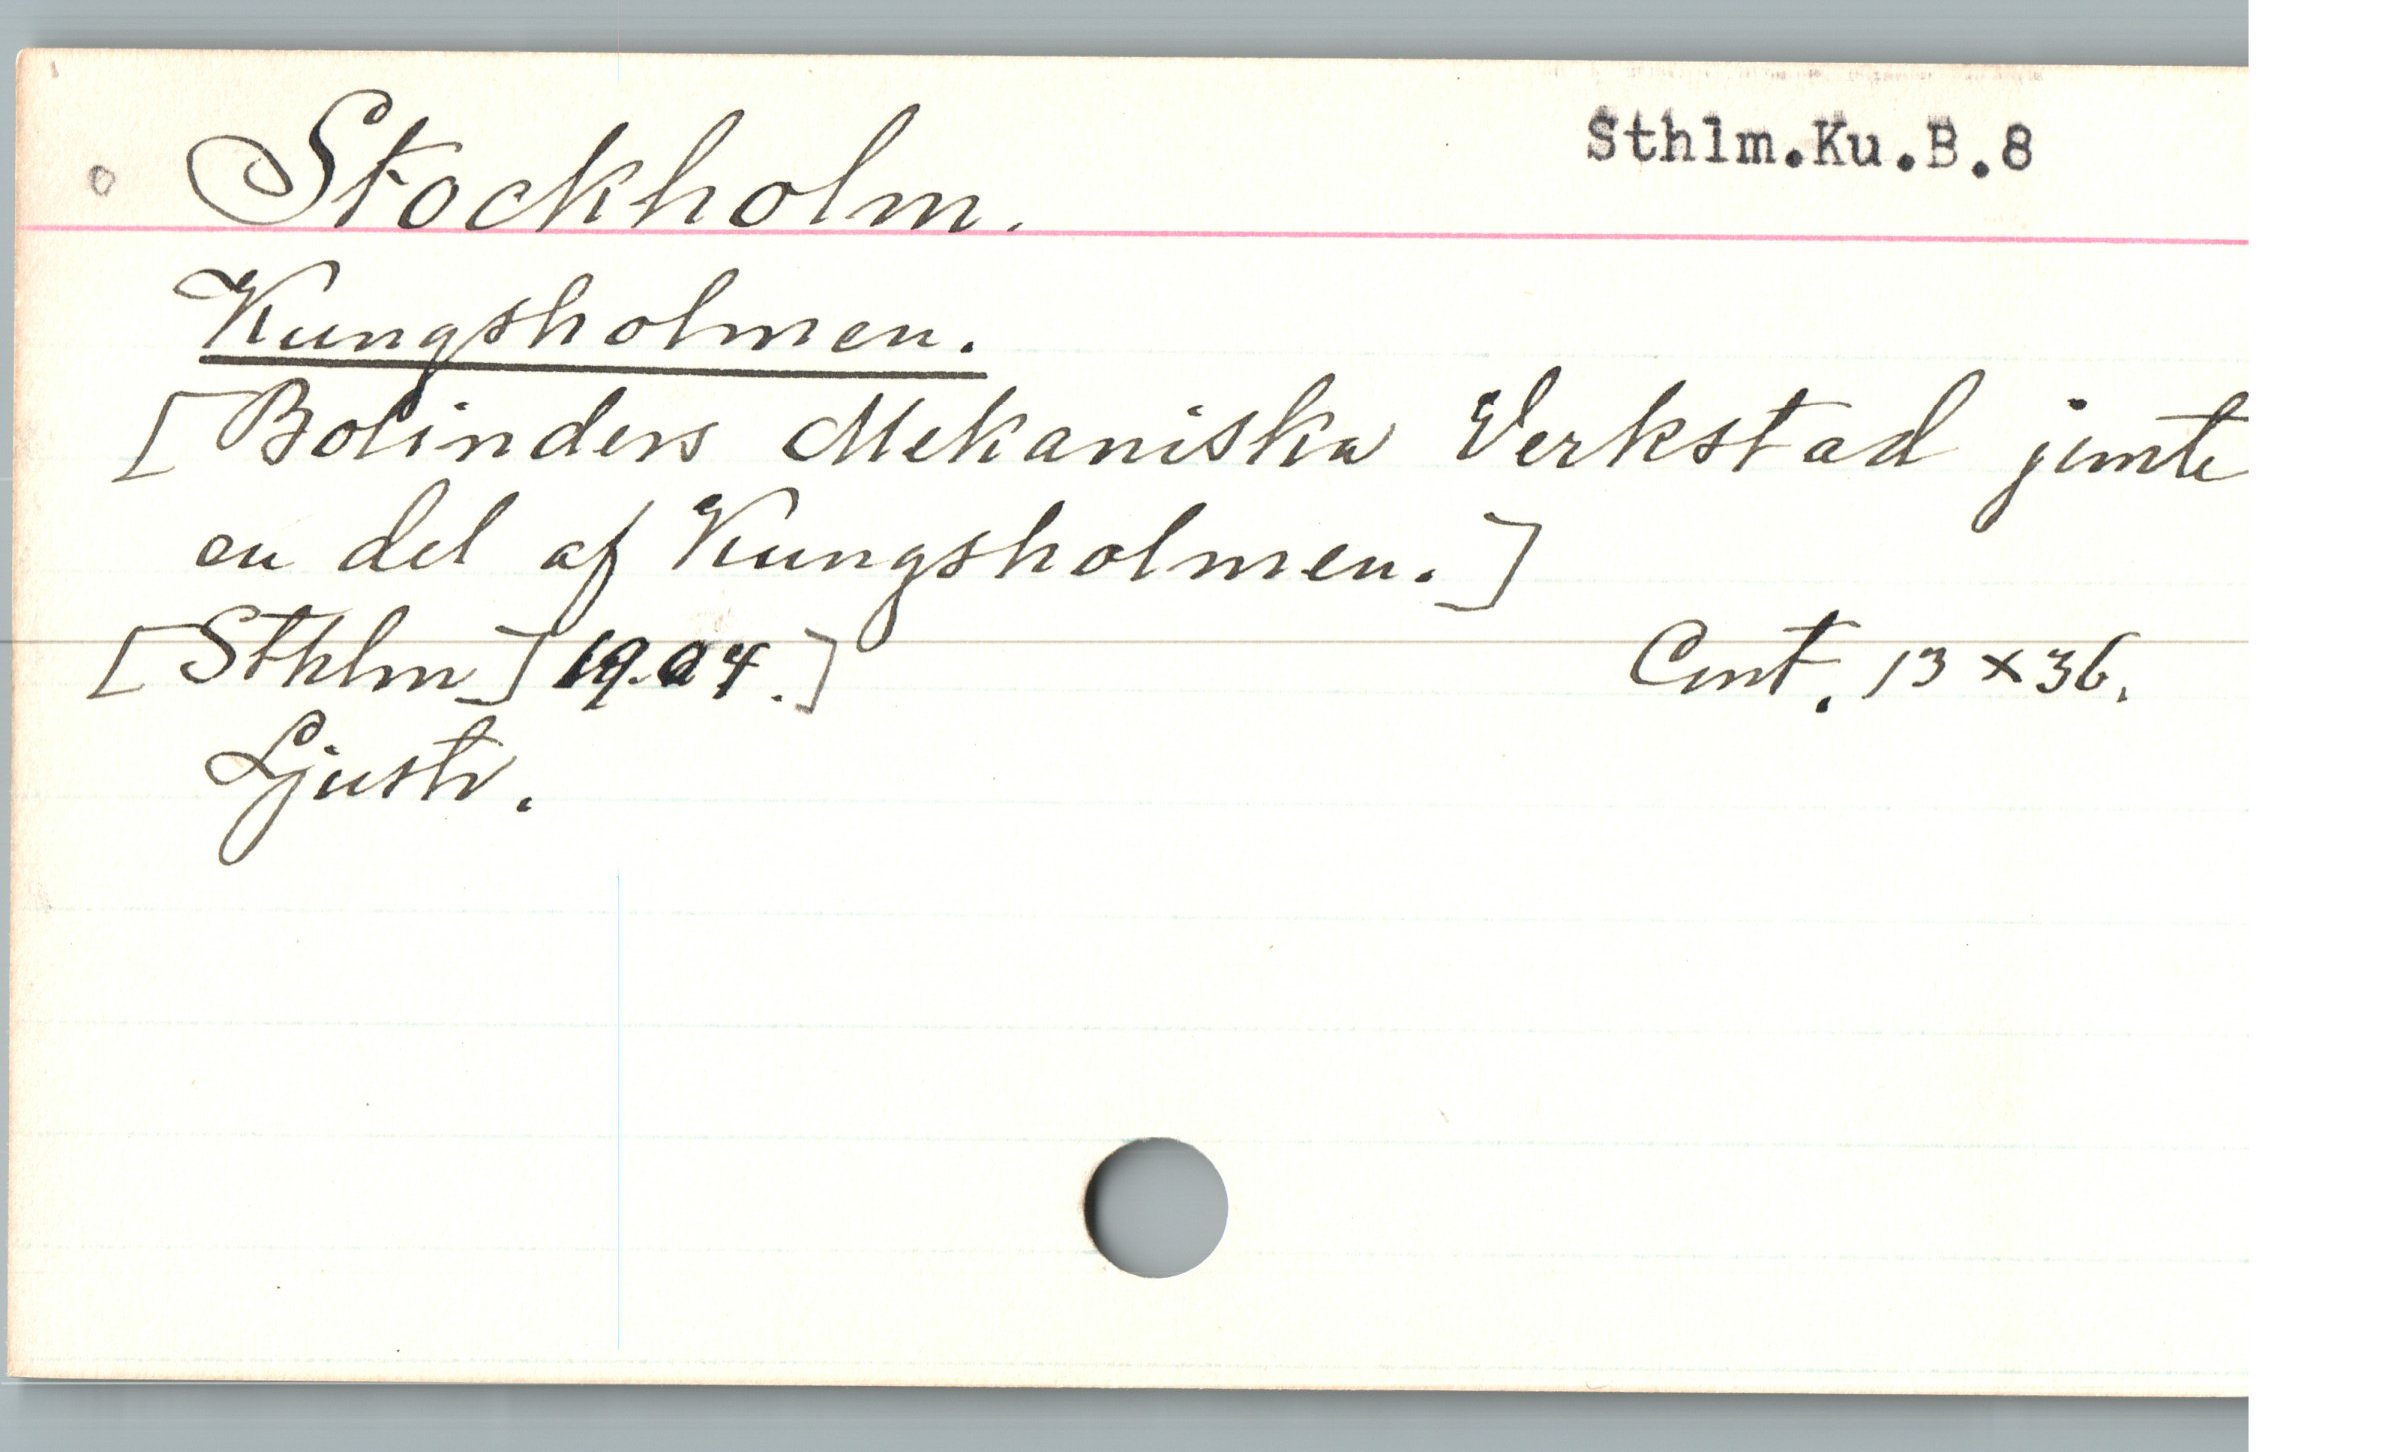 Stockholm.
Sthlm.Ku.B.8
Kungsholmen.
[Bolinders Mekaniska Verkstad jemte
en del af Kungsholmen.]
[Sthlm] 19.04.]
Cmt. 13 x 36.
Ljustr.